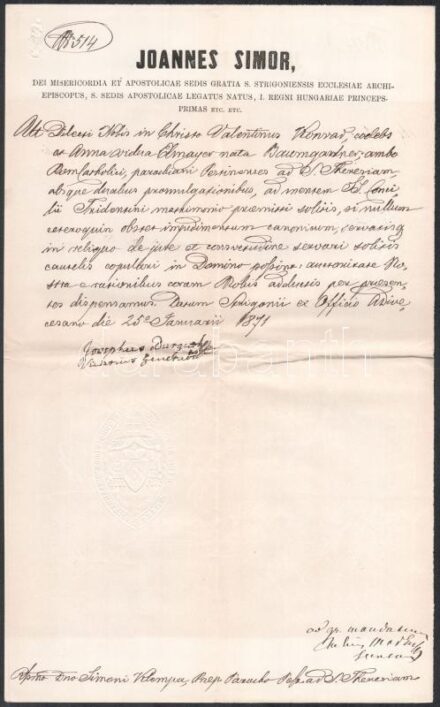 514
JOANNES SIMOR,
DEI MISERICORDIA ET APOSTOLICAE SEDIS GRATIA S. STRIGONIENSIS ECCLESIAE ARCHI-
EPISCOPUS, S. SEDIS APOSTOLICAE LEGATUS NATUS, I. REGNI HUNGARIAE PRINCEPS-
PRIMAS ETC. ETC.
Ut Dilecti Nobis in Christo Valentinus Konrad, coelebs
et Anna vidua Elmayer nata Baumgardner, ambo
RomCatholici, parochiani Pestinenses ad S. Theresiam
absque duabus promulgationibus, ad mentem S. Conci-
lii Tridentini matrimonio praemitti solitis, si nullum
obstet impedimentum canonicum, servatis
in reliquo de jure et consvetudine servari solitis
cautelis copulari in Domino possint: authoritate No-
stra e rationibus coram Nobis adductis per praesen-
tes dispensamus. Datum Strigonii ex Officio Dioe-
cesano die 25a Januarii 1871
Josephus
Vicarius Generalis
ad gr. mandatum
Simoni Klempa, Parocho Pest. ad S. Theresiam